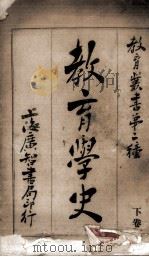 教育叢書第二種
教育學史
下卷
上海廣智書局印行
www.mtoou.info